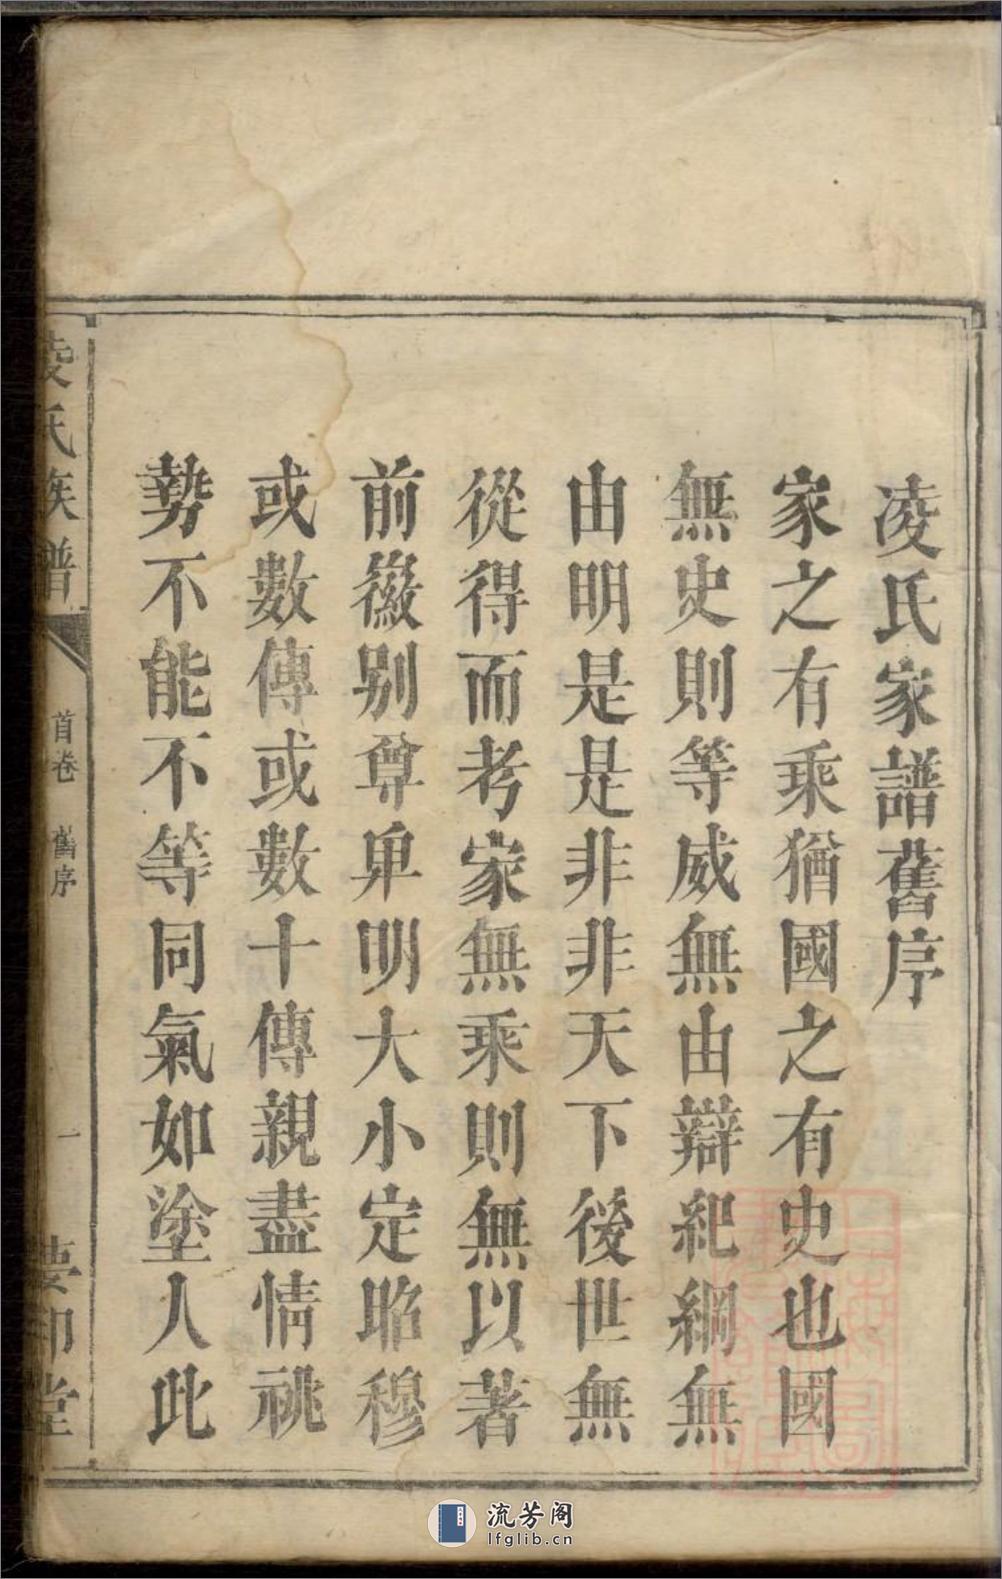 凌氏家譜舊序
家之有乘猶國之有史也國
無史則等威無由辯紀綱無
由明是是非非天下後世無
從得而考家無乘則無以著
前徽别尊卑明大小定昭穆
或數傳或數十傳親盡情祧
勢不能不等同氣如塗人此
凌氏族譜
首卷 舊序
一
堂
流芳阁
lfglib.cn